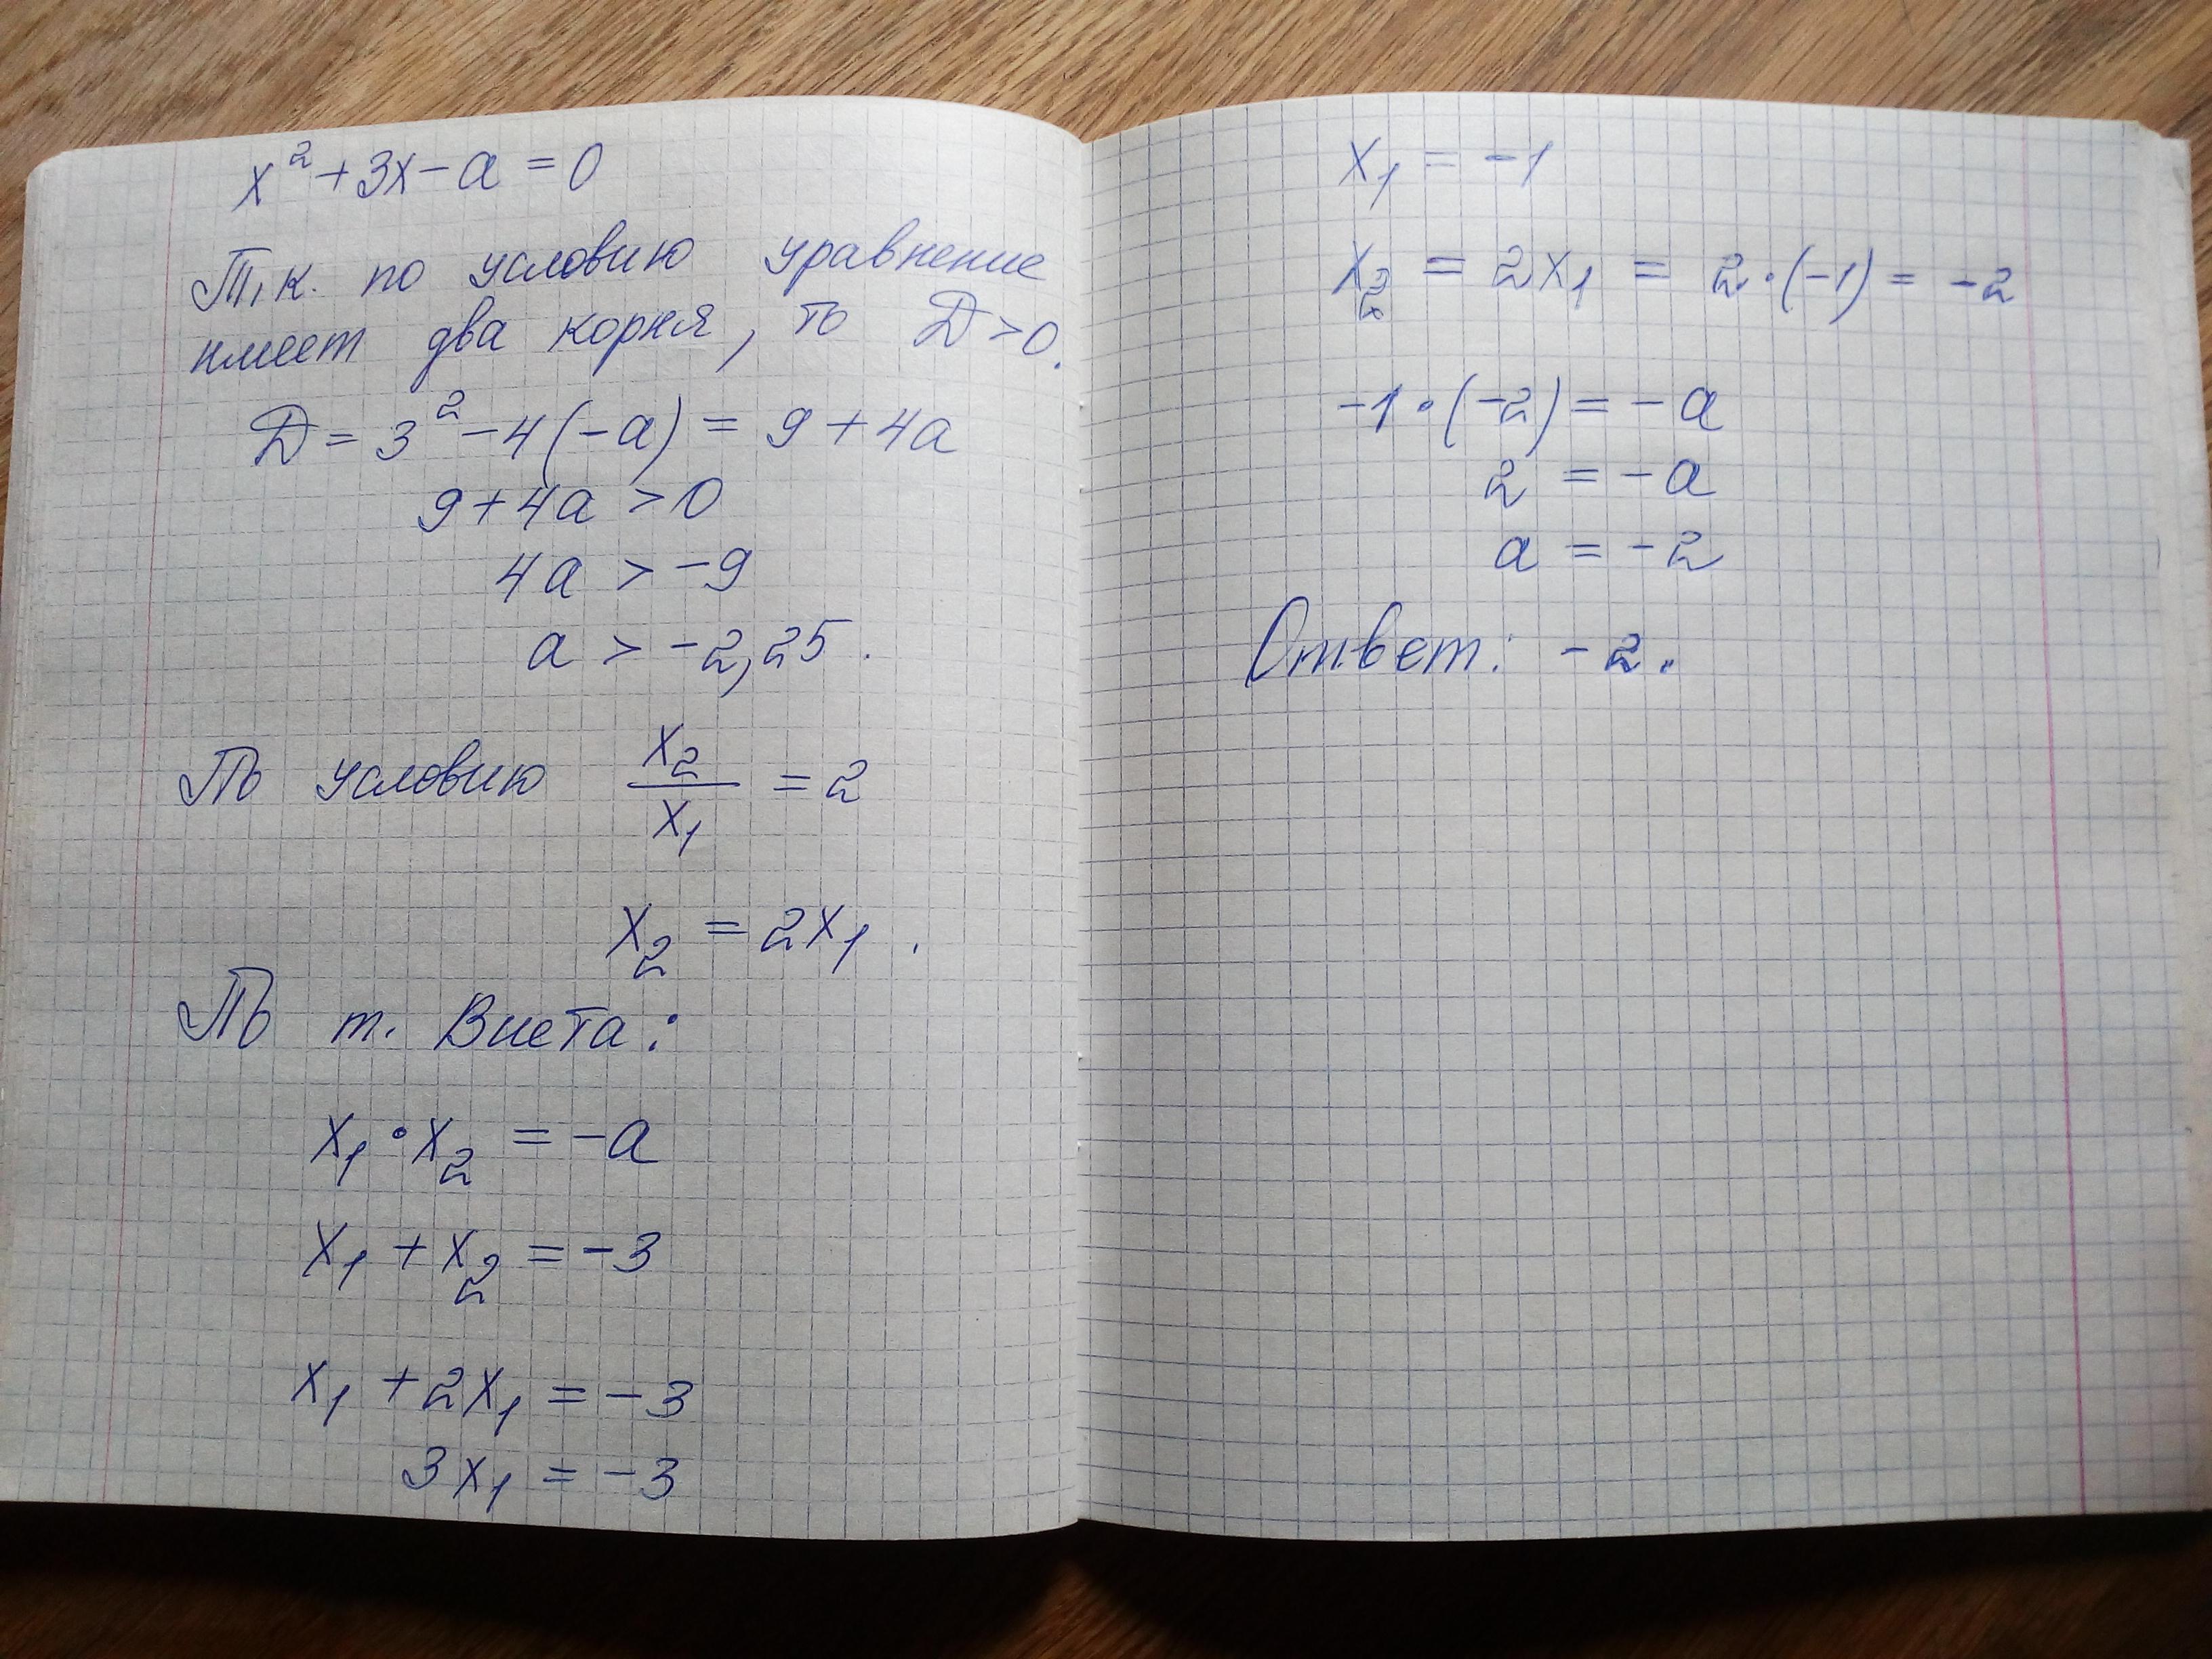 x² + 3x - a = 0
Т.к. по условию уравнение
имеет два корня, то D > 0.
D = 3² - 4(-a) = 9 + 4a
9 + 4a > 0
4a > -9
a > -2,25.
По условию x₂/x₁ = 2
x₂ = 2x₁.
По т. Виета:
x₁ • x₂ = -a
x₁ + x₂ = -3
x₁ + 2x₁ = -3
3x₁ = -3
x₁ = -1
x₂ = 2x₁ = 2•(-1) = -2
-1•(-2) = -a
2 = -a
a = -2
Ответ: -2.